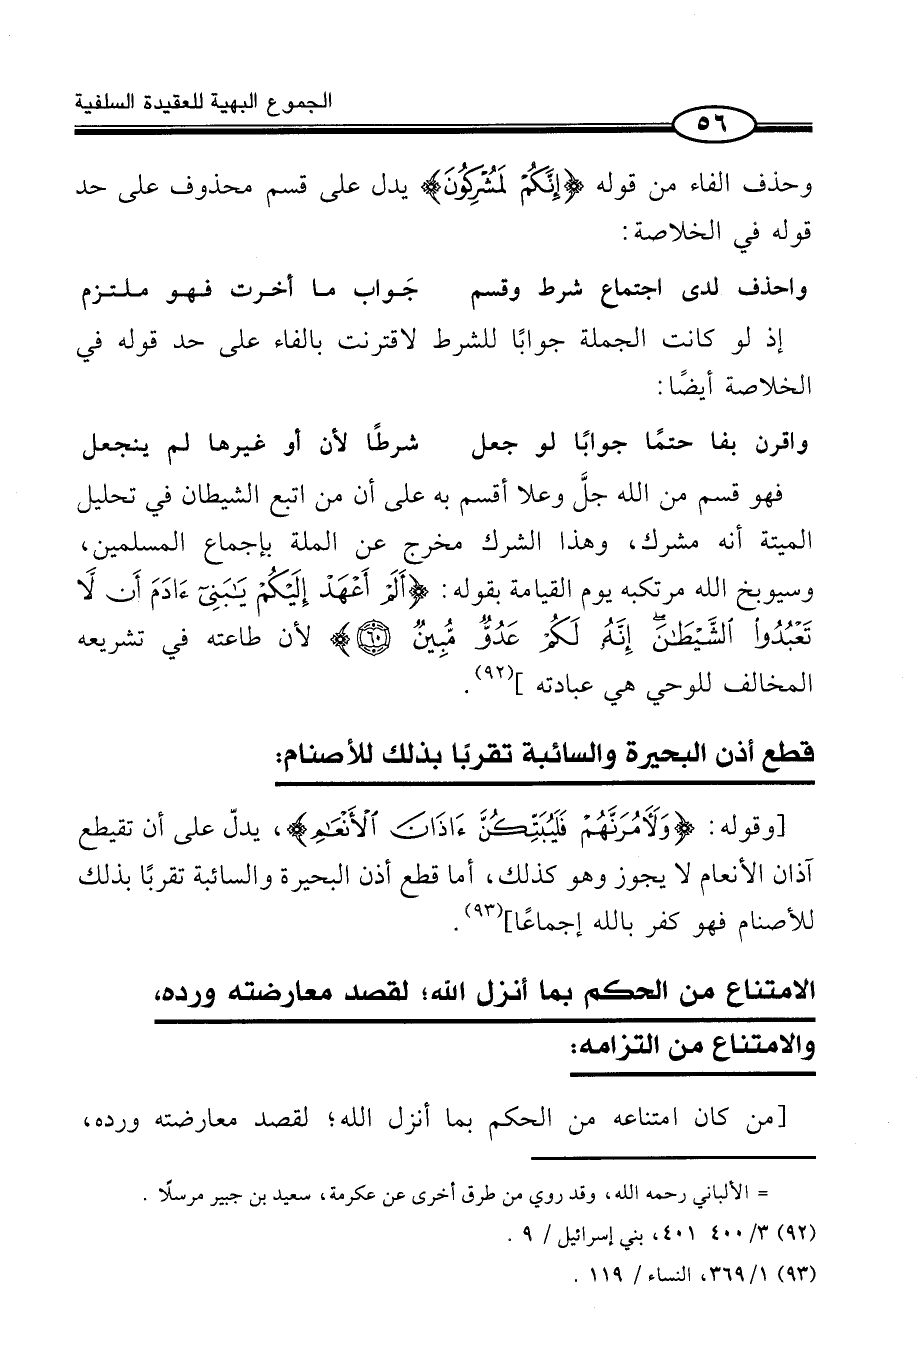 الجموع البهية للعقيدة السلفية
٥٦
وحذف الفاء من قوله ﴿إِنَّكُمْ لَمُشْرِكُونَ﴾ يدل على قسم محذوف على حد
قوله في الخلاصة:
واحذف لدى اجتماع شرط وقسم جَواب ما أخرت فهو ملتزم
إذ لو كانت الجملة جوابًا للشرط لاقترنت بالفاء على حد قوله في
الخلاصة أيضًا:
واقرن بفا حتمًا جوابًا لو جعل شرطًا لأن أو غيرها لم ينجعل
فهو قسم من الله جلَّ وعلا أقسم به على أن من اتبع الشيطان في تحليل
الميتة أنه مشرك، وهذا الشرك مخرج عن الملة بإجماع المسلمين،
وسيوبخ الله مرتكبه يوم القيامة بقوله: ﴿أَلَمْ أَعْهَدْ إِلَيْكُمْ يَٰبَنِىٓ ءَادَمَ أَن لَّا
تَعْبُدُوا۟ ٱلشَّيْطَٰنَ ۖ إِنَّهُۥ لَكُمْ عَدُوٌّ مُّبِينٌ ﴿٦٠﴾﴾ لأن طاعته في تشريعه
المخالف للوحي هي عبادته ](٩٢).
قطع أذن البحيرة والسائبة تقربًا بذلك للأصنام:
[وقوله: ﴿وَلَأٓمُرَنَّهُمْ فَلَيُبَتِّكُنَّ ءَاذَانَ ٱلْأَنْعَٰمِ﴾، يدلّ على أن تقيطع
آذان الأنعام لا يجوز وهو كذلك، أما قطع أذن البحيرة والسائبة تقربًا بذلك
للأصنام فهو كفر بالله إجماعًا](٩٣).
الامتناع من الحكم بما أنزل الله؛ لقصد معارضته ورده،
والامتناع من التزامه:
[من كان امتناعه من الحكم بما أنزل الله؛ لقصد معارضته ورده،
= الألباني رحمه الله، وقد روي من طرق أخرى عن عكرمة، سعيد بن جبير مرسلًا .
(٩٢) ٣/ ٤٠٠ ٤٠١، بني إسرائيل / ٩ .
(٩٣) ١/ ٣٦٩، النساء / ١١٩ .